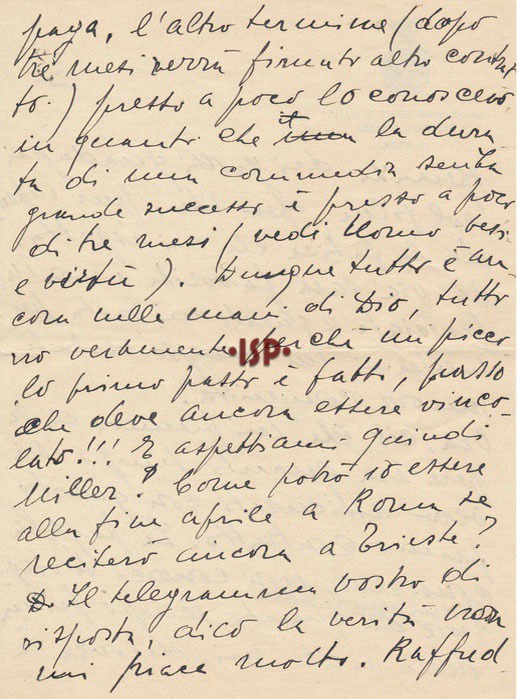 paga, l'altro termine (dopo
tre mesi verrà firmato altro contrat
to.) presso a poco lo conoscevo
in quanto che la dura
ta di una commedia senza
grande successo è presso a poco
di tre mesi (vedi Uomo besti
e virtù). Dunque tutto è an
cora nelle mani di Dio, tutto
no veramente perchè un picco
lo primo passo è fatto, passo
che deve ancora essere vinco
lato!!! E aspettiamo quindi
Miller? Come potrò io essere
alla fine aprile a Roma se
reciterò ancora a Trieste?
Il telegramma vostro di
risposta, dico la verità non
mi piace molto. Raffred
·ISP·